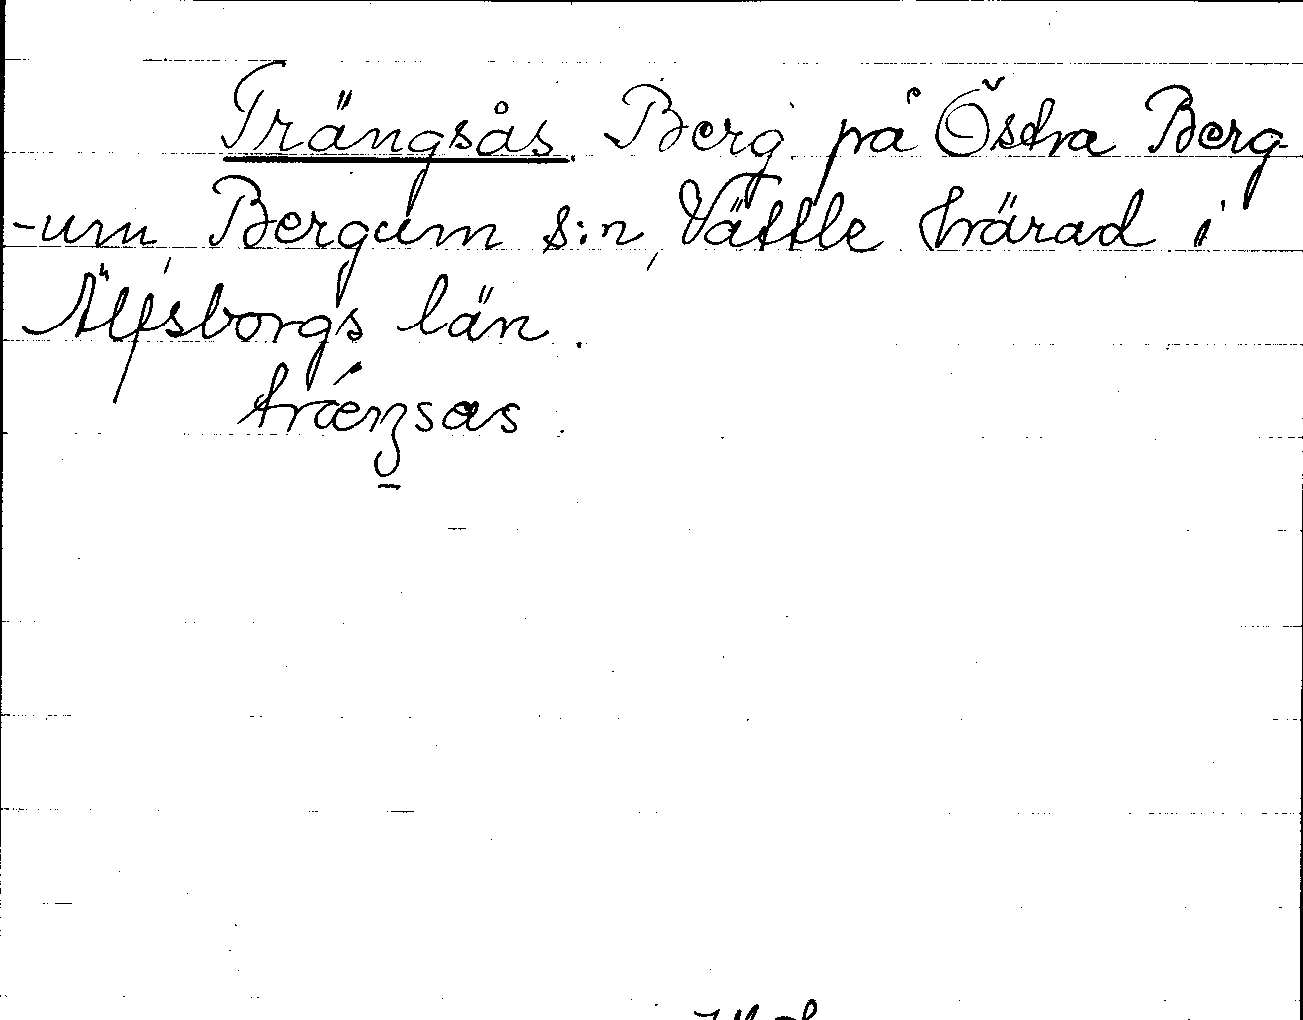 Trängsås. Berg på Östra Berg-
-um, Bergum s:n, Vättle härad i
Älfsborgs län.